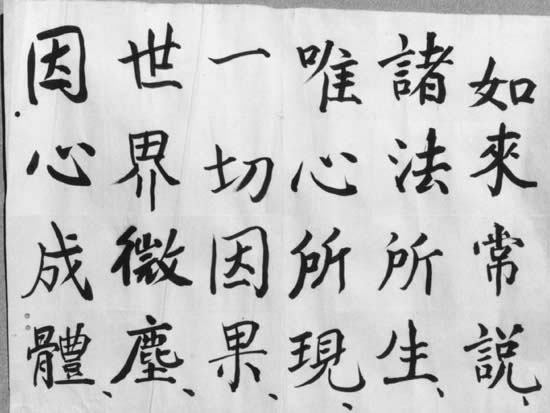 如來常說、
諸法所生、
唯心所現、
一切因果、
世界微塵、
因心成體、